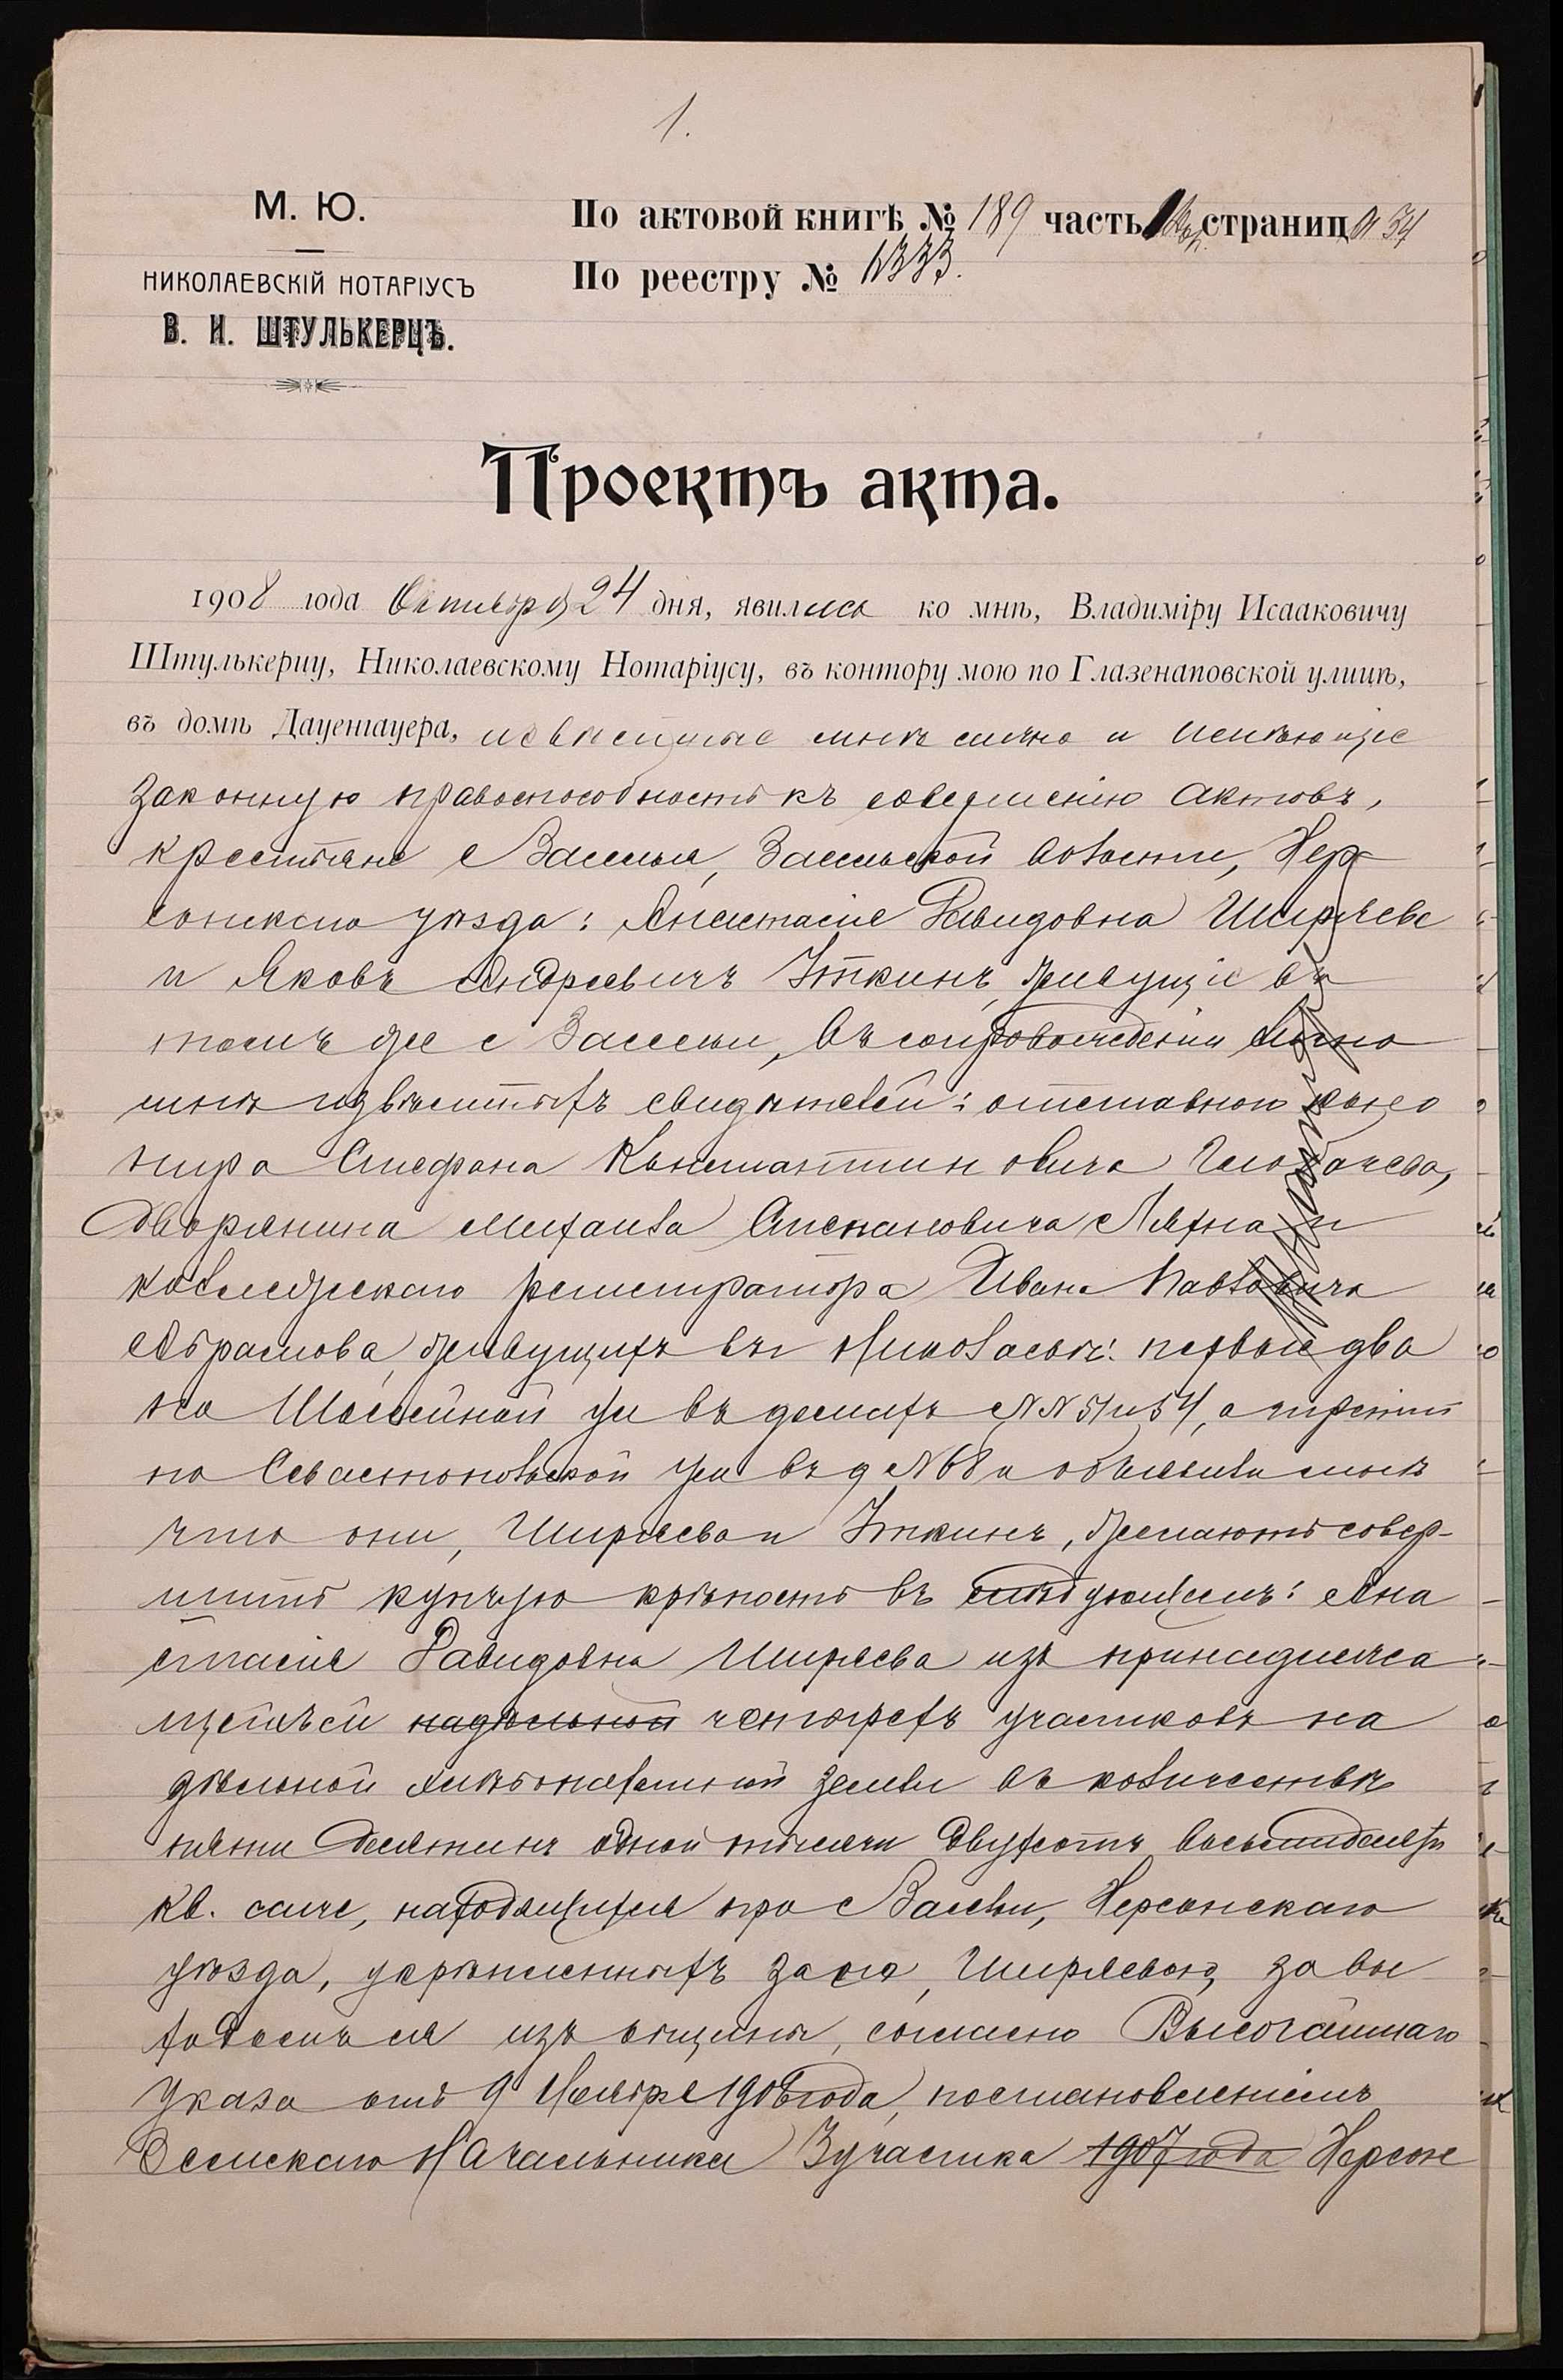 1.
М. Ю.
По актовой книгѣ № 189 часть страница 34
НИКОЛАЕВСКІЙ НОТАРІУСЪ
По реестру № 1333.
В. И. ШТУЛЬКЕРЦЪ.
Проектъ акта.
1908 года Октября 24 дня, явились ко мнѣ, Владиміру Исааковичу
Штулькерцу, Николаевскому Нотаріусу, въ контору мою по Глазенаповской улицѣ,
въ домѣ Дауенгауера, извѣстные мнѣ лично и имѣющіе
законную правоспособность къ совершенію актовъ,
крестьяне с Заселья, Засельской волости, Хер
сонскаго уѣзда: Анастасія Давидовна Ширяева
и Яковъ Андреевичъ Уткинъ, живущіе въ
томъ же с Засельи, въ сопровожденіи лично
мнѣ извѣстныхъ свидѣтелей: отставнаго
Стефана Константиновича
дворянина Михаила Степановича Ляхна и
коллежскаго регистратора Ивана Павловича
Абрамова, живущихъ въ Николаевѣ: первые два
на Шоссейной ул въ домахъ №№ 51 и 54, а третій
по Севастопольской ул въ д № 68 и объявили мнѣ
что они, Ширяева и Уткинъ, желаютъ совер-
шить купчую крѣпость въ слѣдующемъ: Ана
стасія Давидовна Ширяева изъ принадлежа
щихъ ей надѣльной четырехъ участковъ на
дѣльной пахотной земли въ количествѣ
пяти десятинъ одной тысячи двухсотъ восьмидесяти
кв. саж, находящихся при с Засельи, Херсонскаго
уѣзда, укрѣпленныхъ за нею, Ширяевою, за вы
ходомъ ея изъ общины, согласно Высочайшаго
указа отъ 9 Ноября 1906 года, постановленіемъ
Земскаго Начальника 3 участка 1907 года Херсон